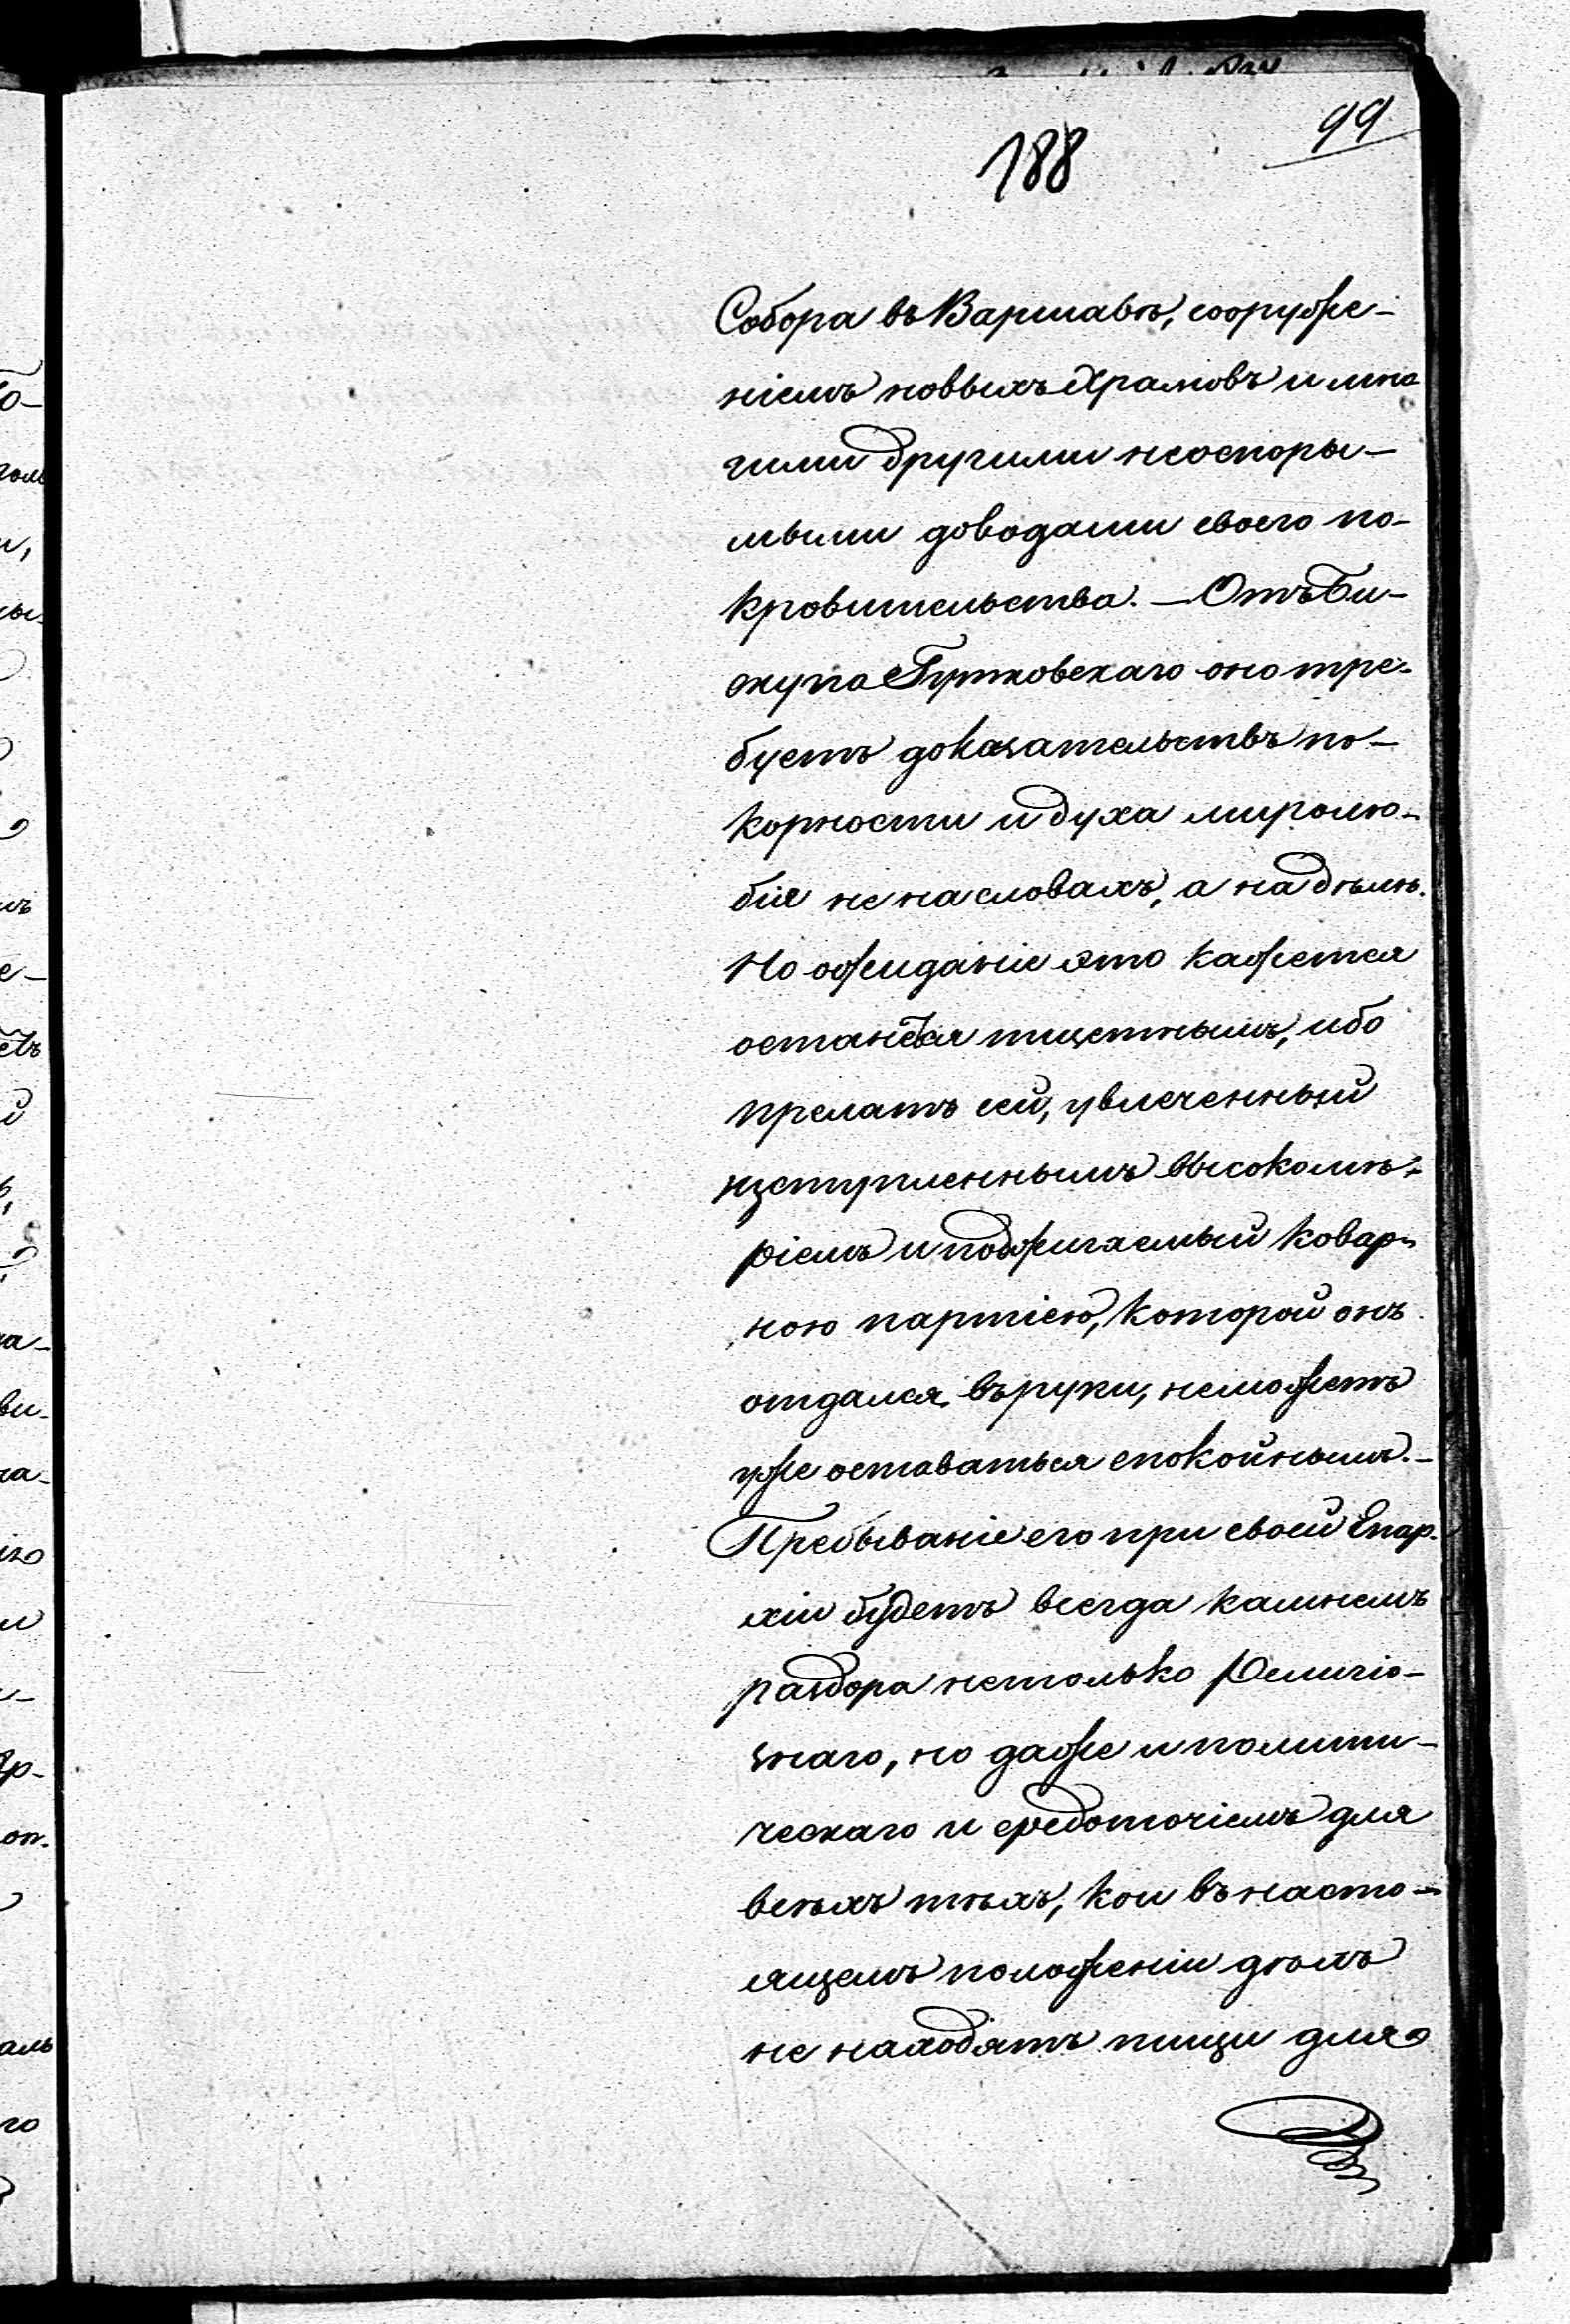 99
188
Собора въ Варшавѣ, сооруже-
ніемъ новыхъ Храмовъ и мно
гими другими неоспори-
мыми доводами своего по-
кровительства. — Отъ Би-
скупа Гутковскаго оно тре-
буетъ доказательствъ по-
корности и духа миролю-
бія не на словахъ, а на дѣлѣ.
Но ожиданіе это кажется
останется тщетнымъ, ибо
прелатъ сей, увлеченный
изступленнымъ высокомѣ-
ріемъ и поджигаемый ковар-
ною партіею, которой онъ
отдался въ руки, не можетъ
уже оставаться спокойнымъ. —
Пребываніе его при своей Епар-
хіи будетъ всегда камнемъ
раздора не только Религіо-
знаго, но даже и полити-
ческаго и средоточіемъ для
всѣхъ тѣхъ, кои въ насто-
ящемъ положеніи дѣлъ
не находятъ пищи для